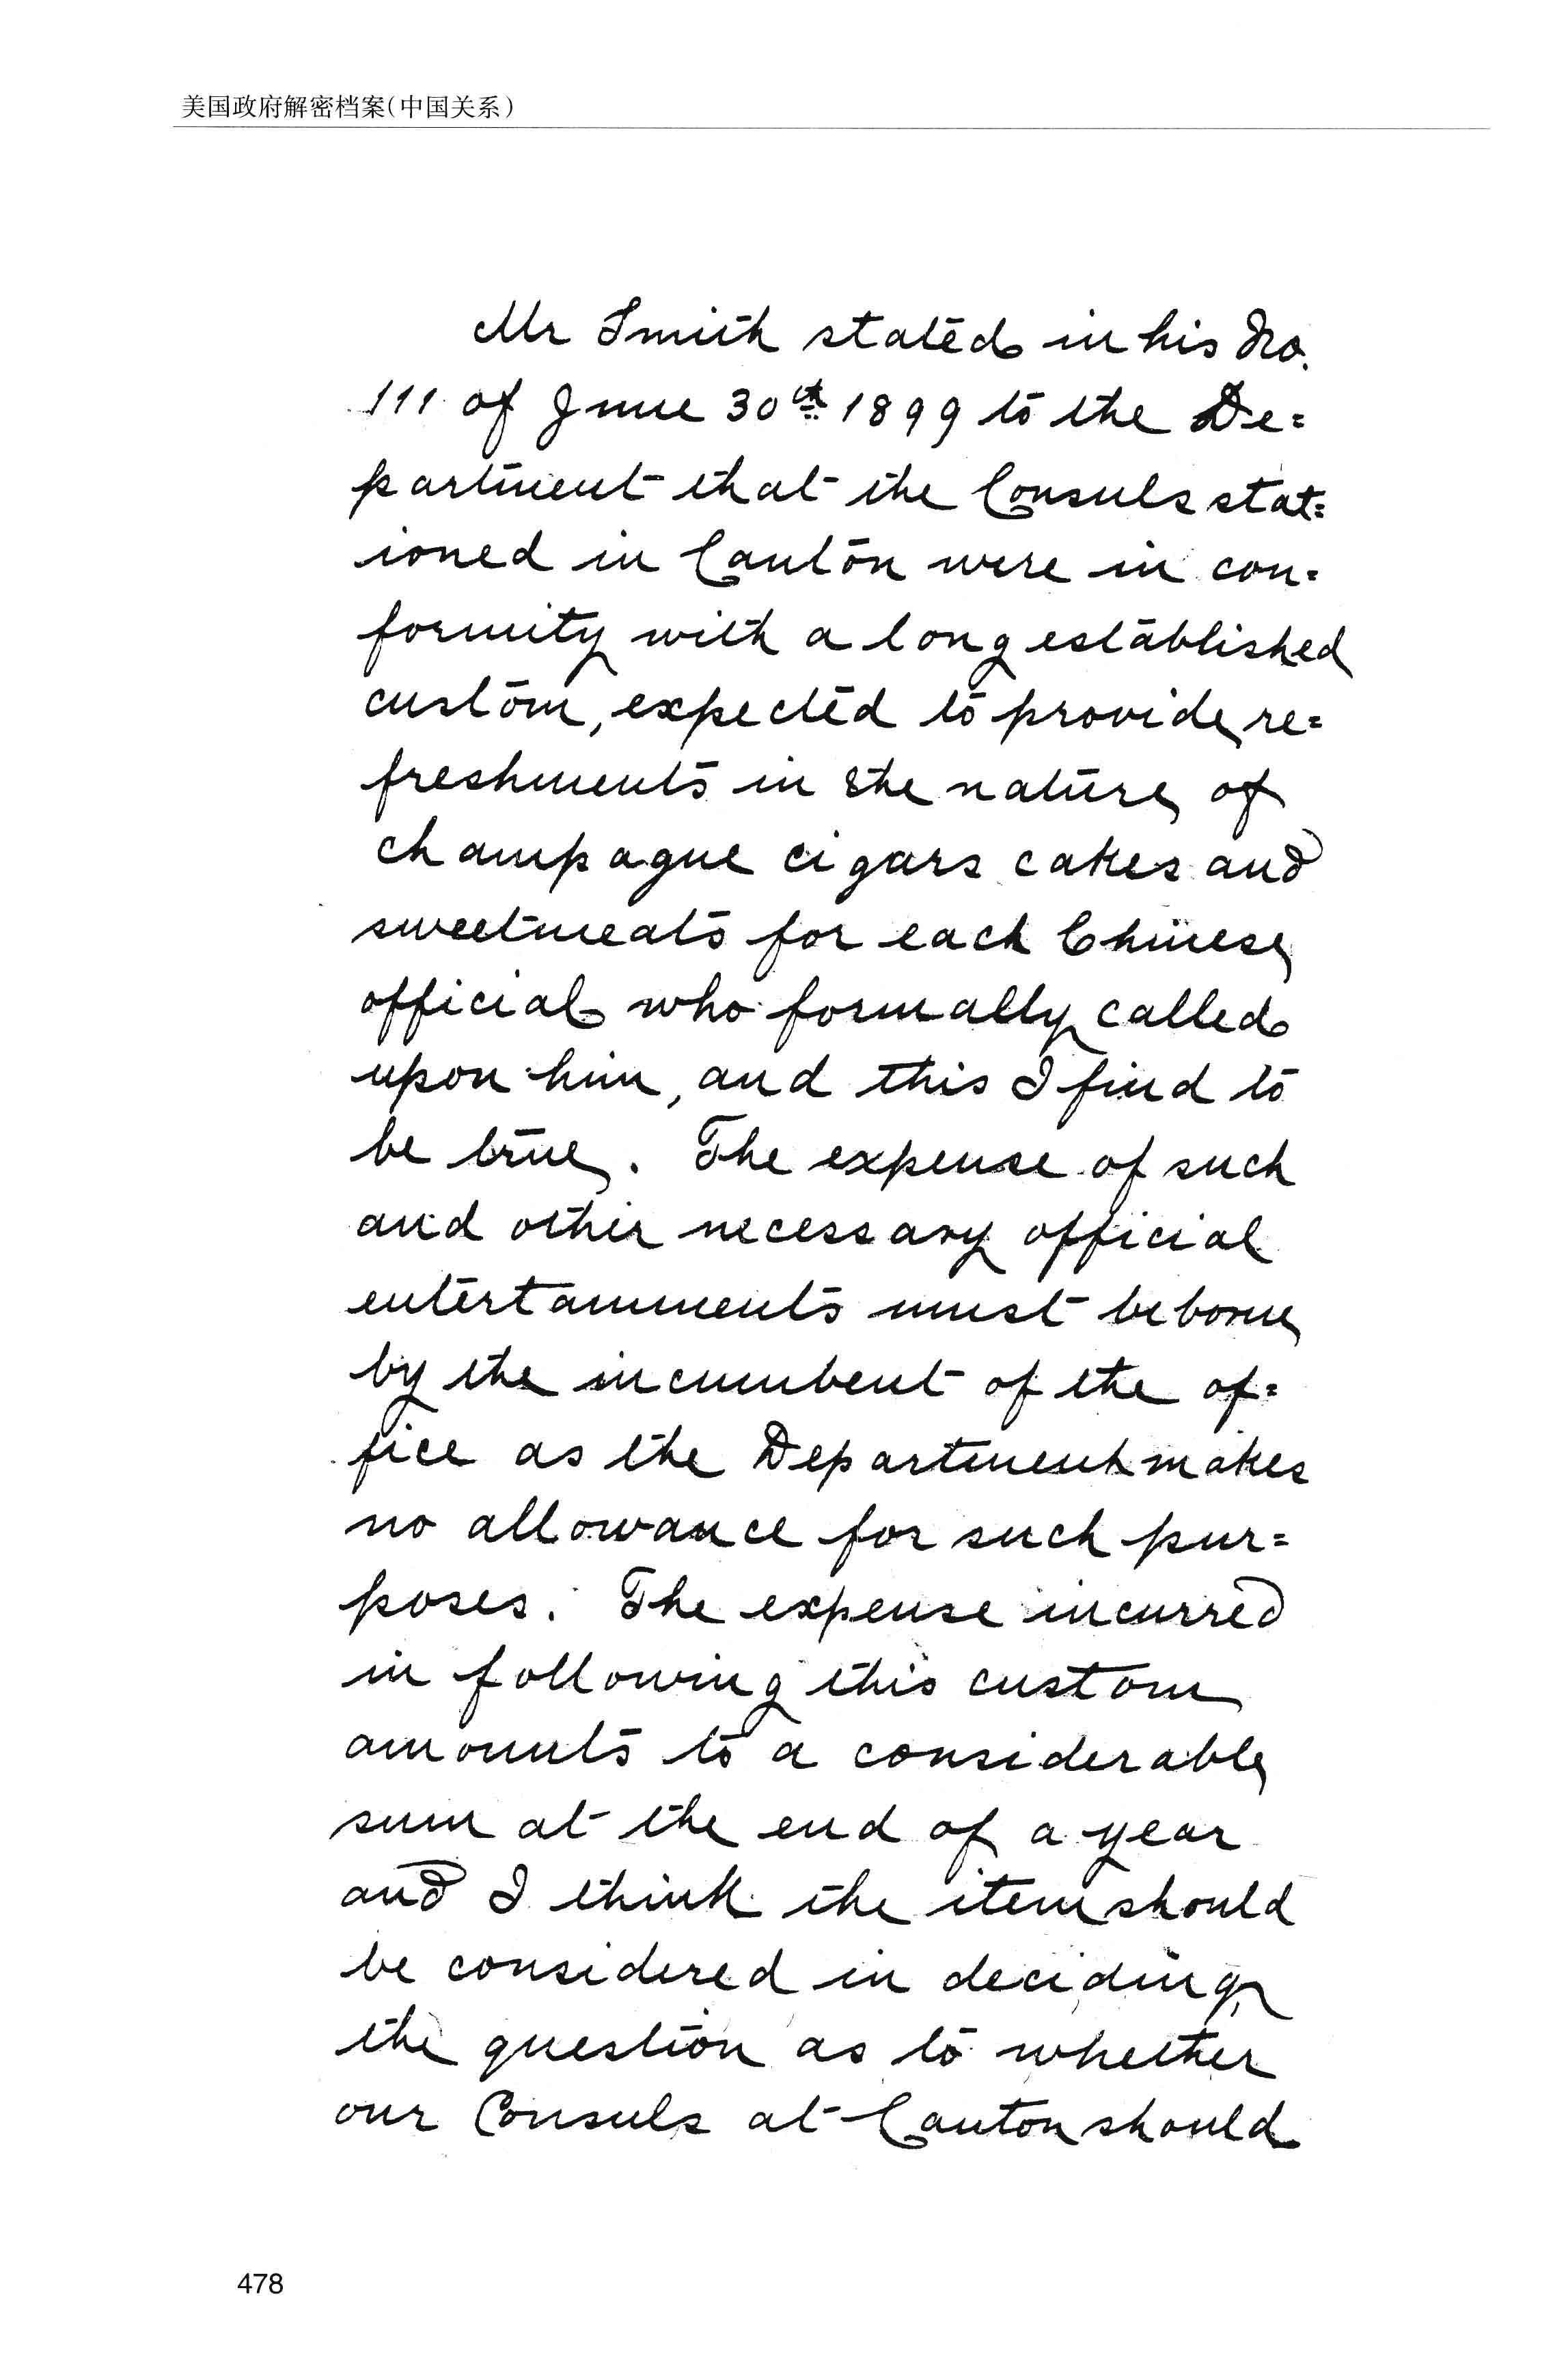 美国政府解密档案(中国关系)
Mr Smith stated in his No.
111 of June 30th 1899 to the De=
partment that the Consuls stat=
ioned in Canton were in con=
formity with a long established
custom, expected to provide re=
freshments in the nature of
champagne cigars cakes and
sweetmeats for each Chinese
official who formally called
upon him, and this I find to
be true. The expense of such
and other necessary official
entertainments must be borne
by the incumbent of the of=
fice as the Department makes
no allowance for such pur=
poses. The expense incurred
in following this custom
amounts to a considerable
sum at the end of a year
and I think the item should
be considered in deciding
the question as to whether
our Consuls at Canton should
478